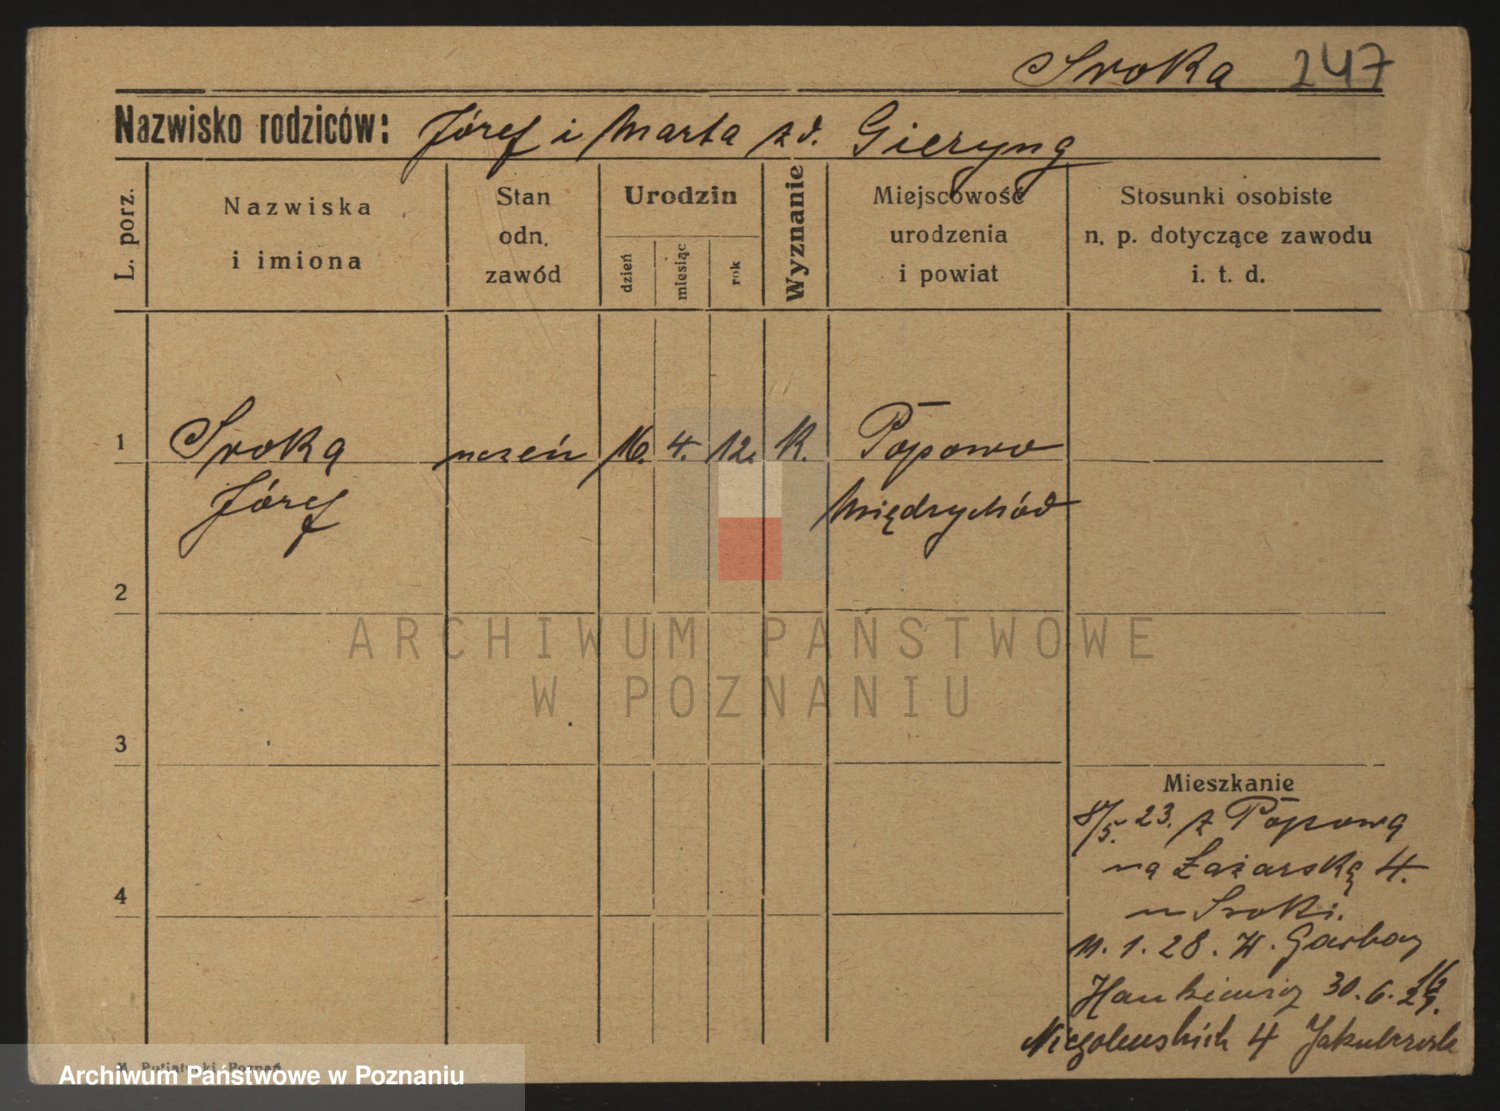 Sroka 247
Nazwisko rodziców: Józef i Marta zd. Gieryng
L. porz.
Nazwiska
i imiona
Stan
odn.
zawód
Urodzin
dzień
miesiąc
rok
Wyznanie
Miejscowość
urodzenia
i powiat
Stosunki osobiste
n. p. dotyczące zawodu
i. t. d.
1 Sroka uczeń 16. 4. 12. K. Popowo
Józef Międzychód
2
ARCHIWUM PAŃSTWOWE
W POZNANIU
3
Mieszkanie
8/5. 23. z Popowa
na Łazarską 4.
u Sroki.
4
11. 1. 28. W. Garbary 16
30. 6. 29.
Niegolewskich 4
Poznań
Archiwum Państwowe w Poznaniu